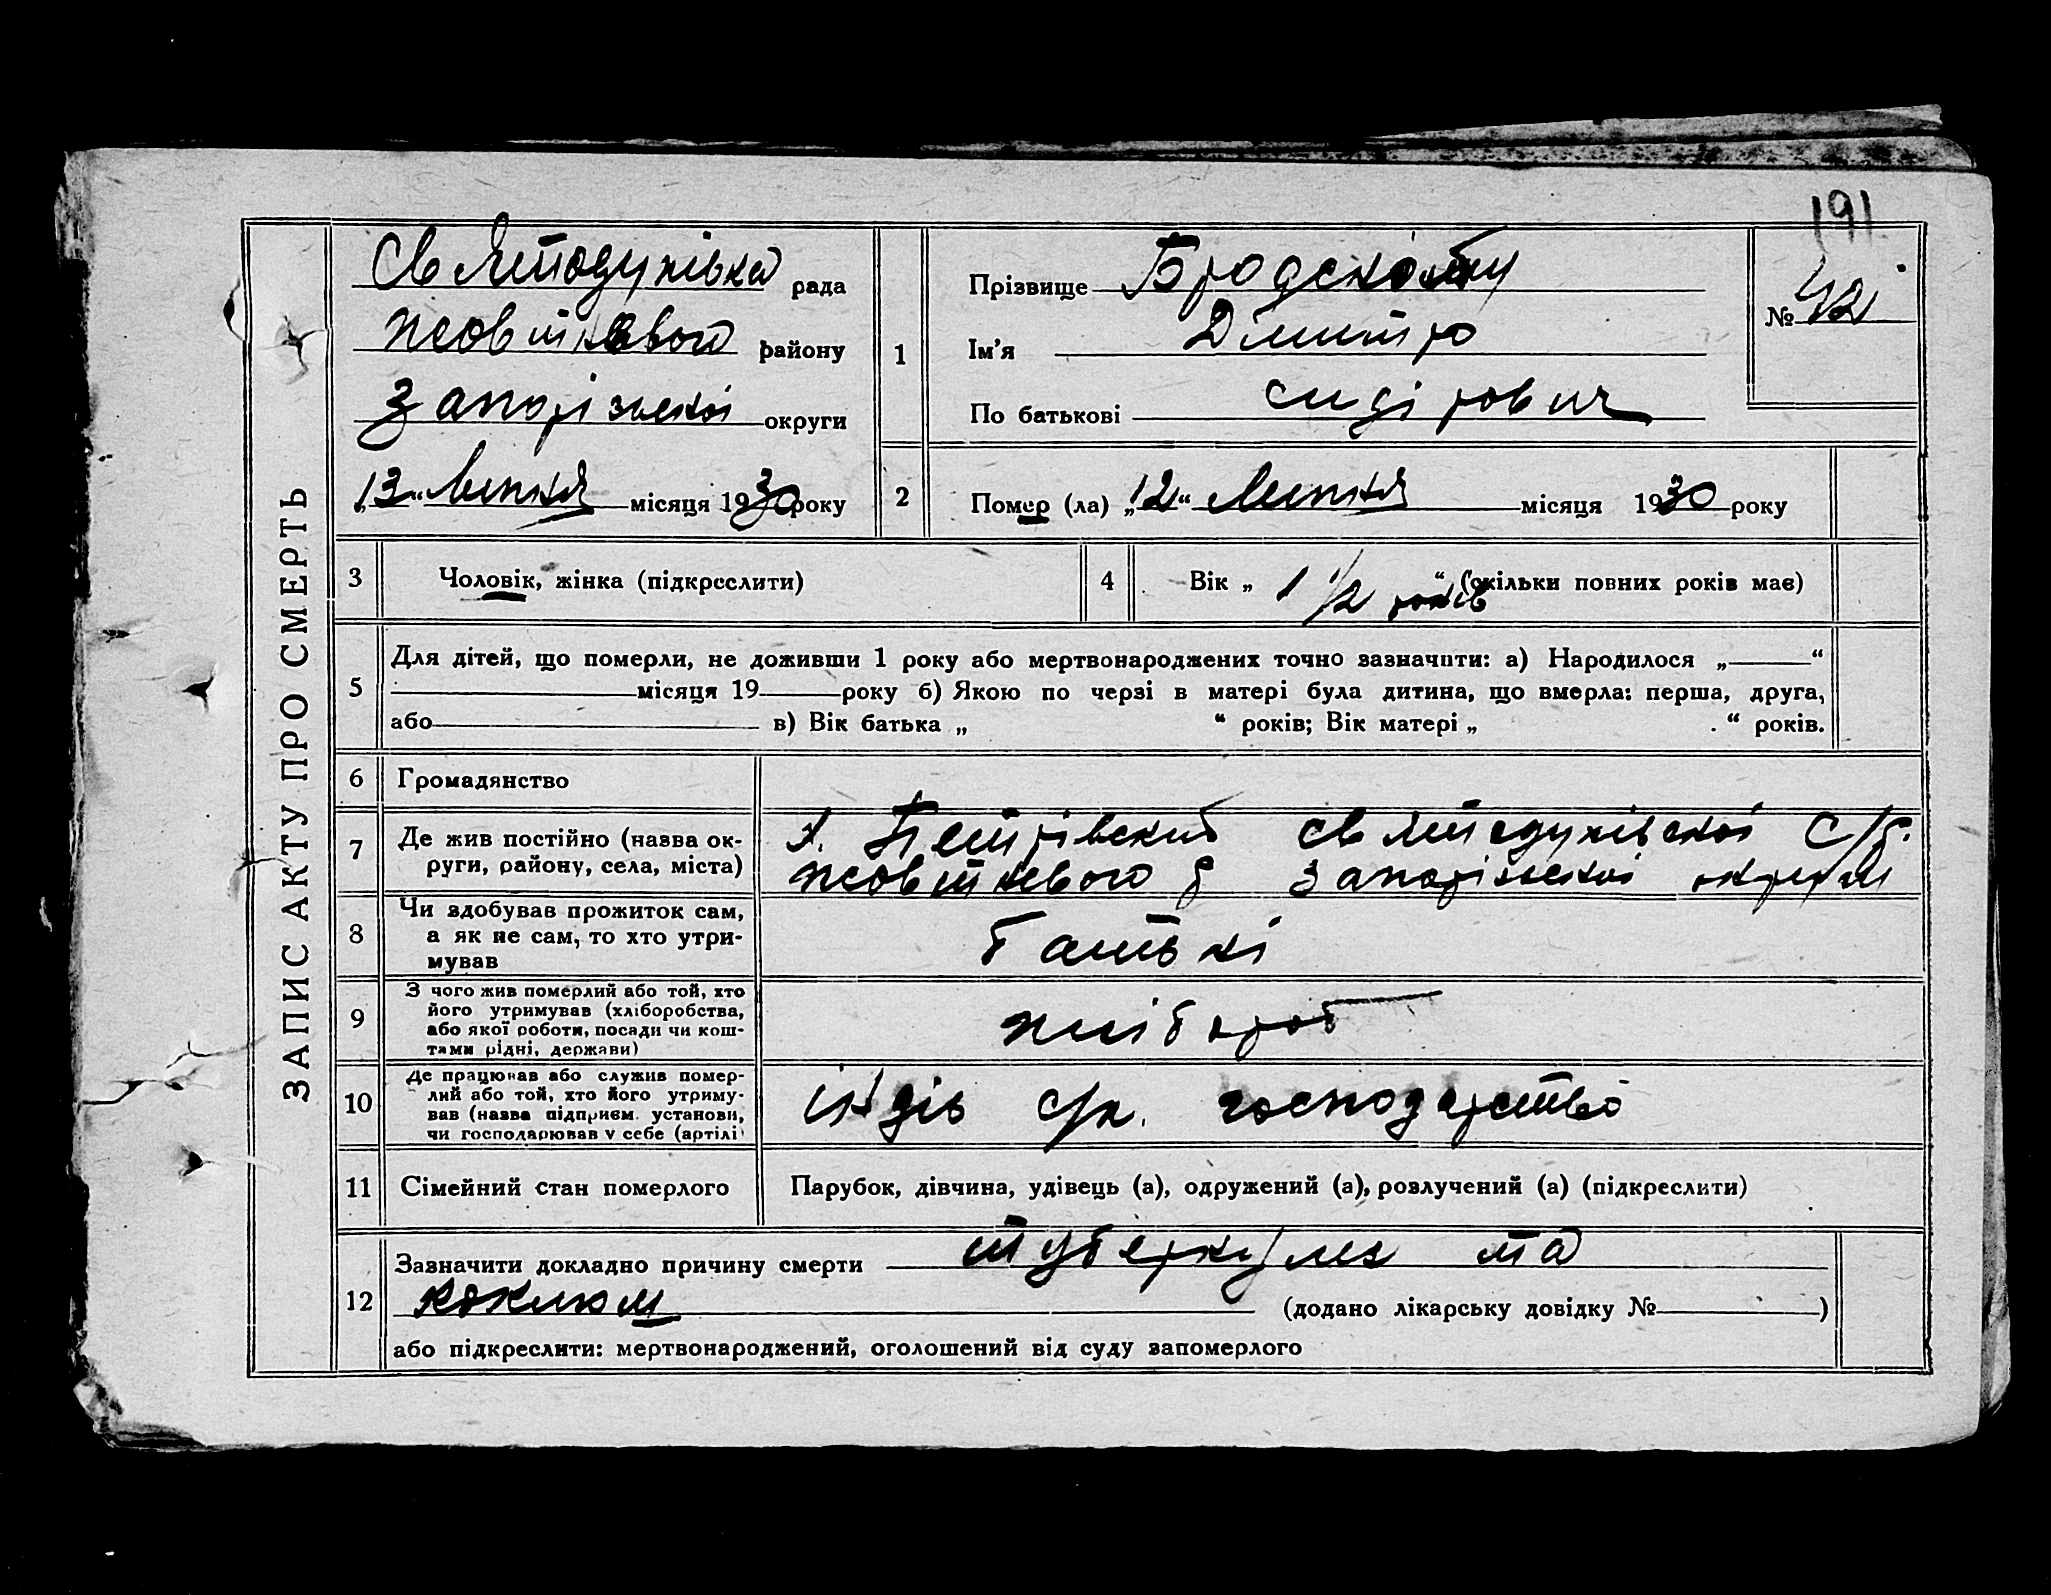 191
ЗАПИС АКТУ ПРО СМЕРТЬ
Святодухівка рада
Жовтневого району
Запоріжської округи
„13“ Липня місяця 1930 року
1 Прізвище
Ім'я Дімитро
По батькові Сидірович
№ 42
2 Помер (ла) „12“ Липня місяця 1930 року
3 Чоловік, жінка (підкреслити)
4 Вік „ 1 1/2 років “ (скільки повних років має)
5 Для дітей, що померли, не доживши 1 року або мертвонароджених точно зазначити: а) Народилося „ “
місяця 19 року б) Якою по черзі в матері була дитина, що вмерла: перша, друга,
або в) Вік батька „ “ років; Вік матері „ “ років.
6 Громадянство
7 Де жив постійно (назва ок-
руги, району, села, міста)
х. Петрівский Святодухівскоі С/Р.
Жовтневого р Запоріжскоі округи
8 Чи здобував прожиток сам,
а як не сам, то хто утри-
мував
батькі
9 З чого жив померлий або той, хто
його утримував (хліборобства,
або якої роботи, посади чи кош-
тами рідні, держави)
хлібороб
10 Де працював або служив помер-
лий або той, хто його утриму-
вав (назва підприєм. установи,
чи господарював у себе (артілі)
індів с/х. господарство
11 Сімейний стан померлого
Парубок, дівчина, удівець (а), одружений (а), розлучений (а) (підкреслити)
12 Зазначити докладно причину смерти туберкульоз та
коклюш (додано лікарську довідку № )
або підкреслити: мертвонароджений, оголошений від суду запомерлого